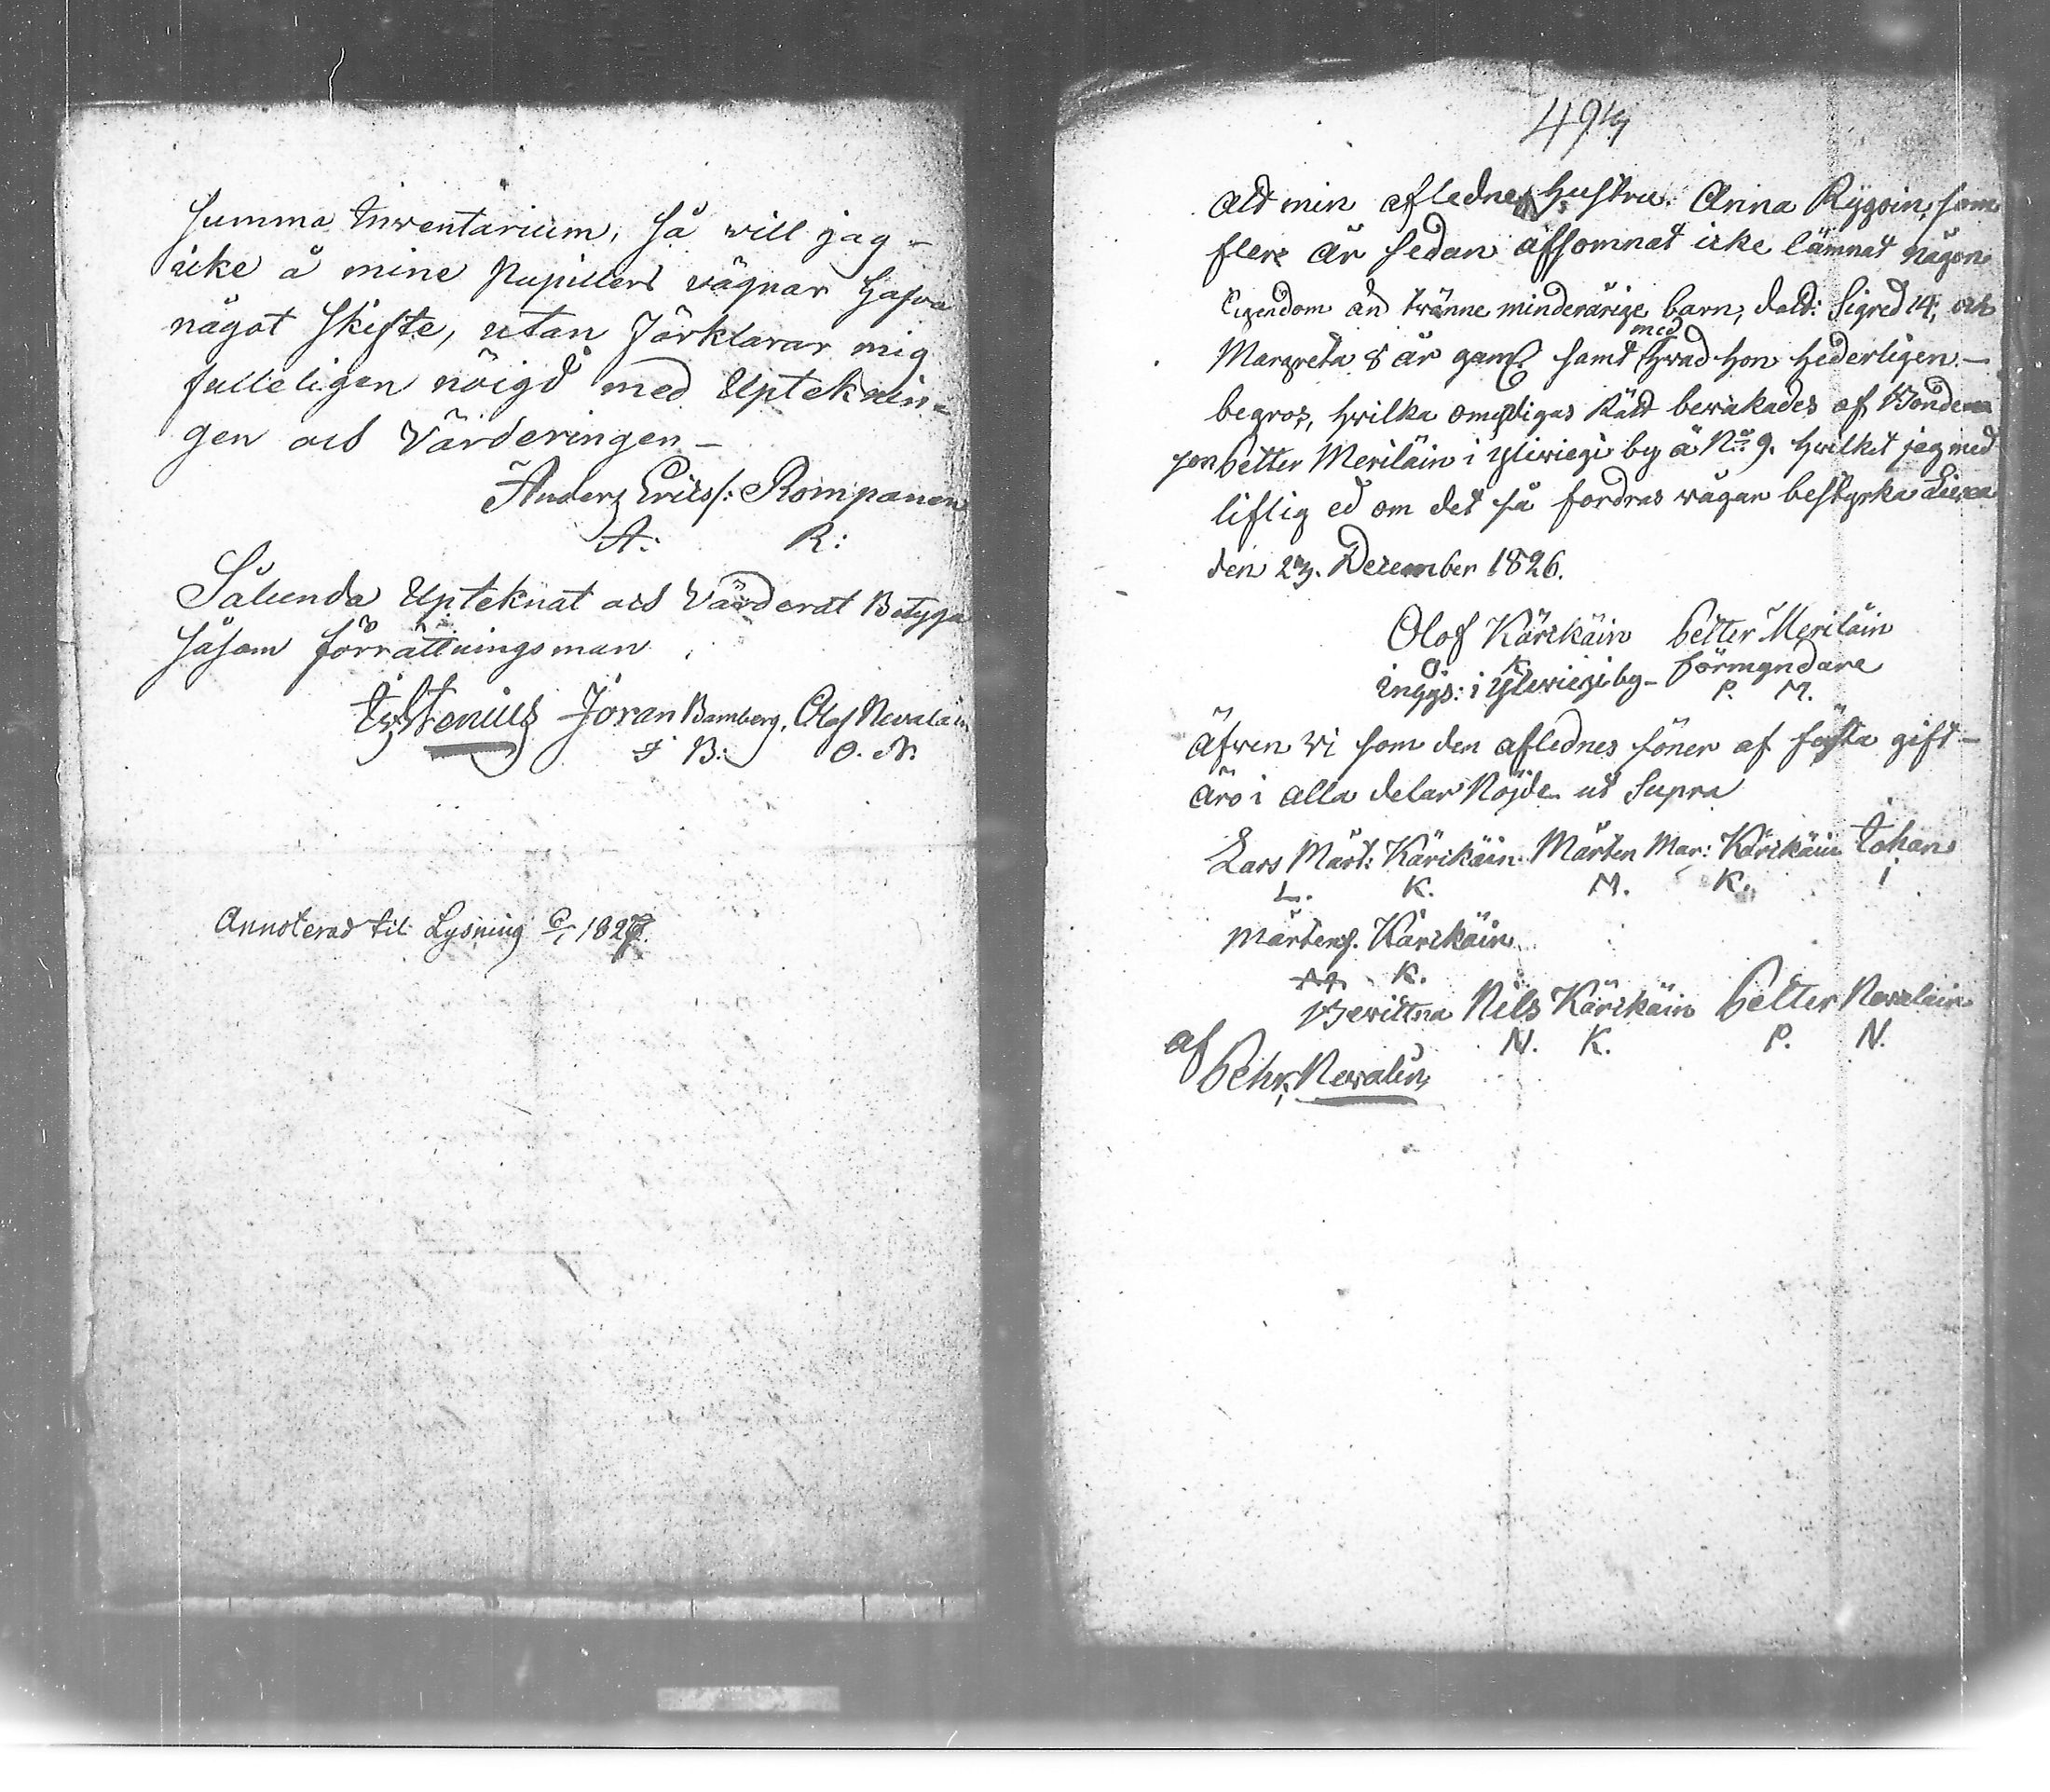 summa Inventarium, så will jag -
icke å mine Pupillers vägnar hafva
något Skifte, utan förklarar mig
fulleligen nöigd med Upteknin-
gen och Värderingen -
Anders Erics: Rompanen
A: R:
Sålunda Upteknat och Värderat Betyga
såsom förrättningsman
Stenius Jöran Bamberg, Olof Nevalain
J B: O. N.
Annoterad til Lysning 1827.
49
Att min aflednes Hustru Anna Rygoin, som
flere år sedan afsomnat icke lämnat någon
Eigendom än tvänne minderårige barn, dott: Sigred 14, och
med
Margreta 8 år gaml samt hvad hon hederligen -
begros, hvilka omyndigas Rätt bevakades af Bonde
son Petter Meriläin i Yleviegi by å No 9. hvilket jag med
liflig ed om det så fordras vågar bestyrka
den 27. December 1826.
Olof Kärikäin Petter Meriläin
O. K. förmyndare
Inggs: i Yleviegi by - P. M.
Äfven Vi som den aflednes söner af första gift -
äro i alla delar Nöjde ut Supra
Lars Mårt: Kärikäin Mårten Mar: Kärikäin Johan
L. K. M. K. I
Mårtens. Kärikäin
M. K.
Bevittna Nils Kärikäin Petter Nevalain
af N. K. P. N.
Pehr Nevalin